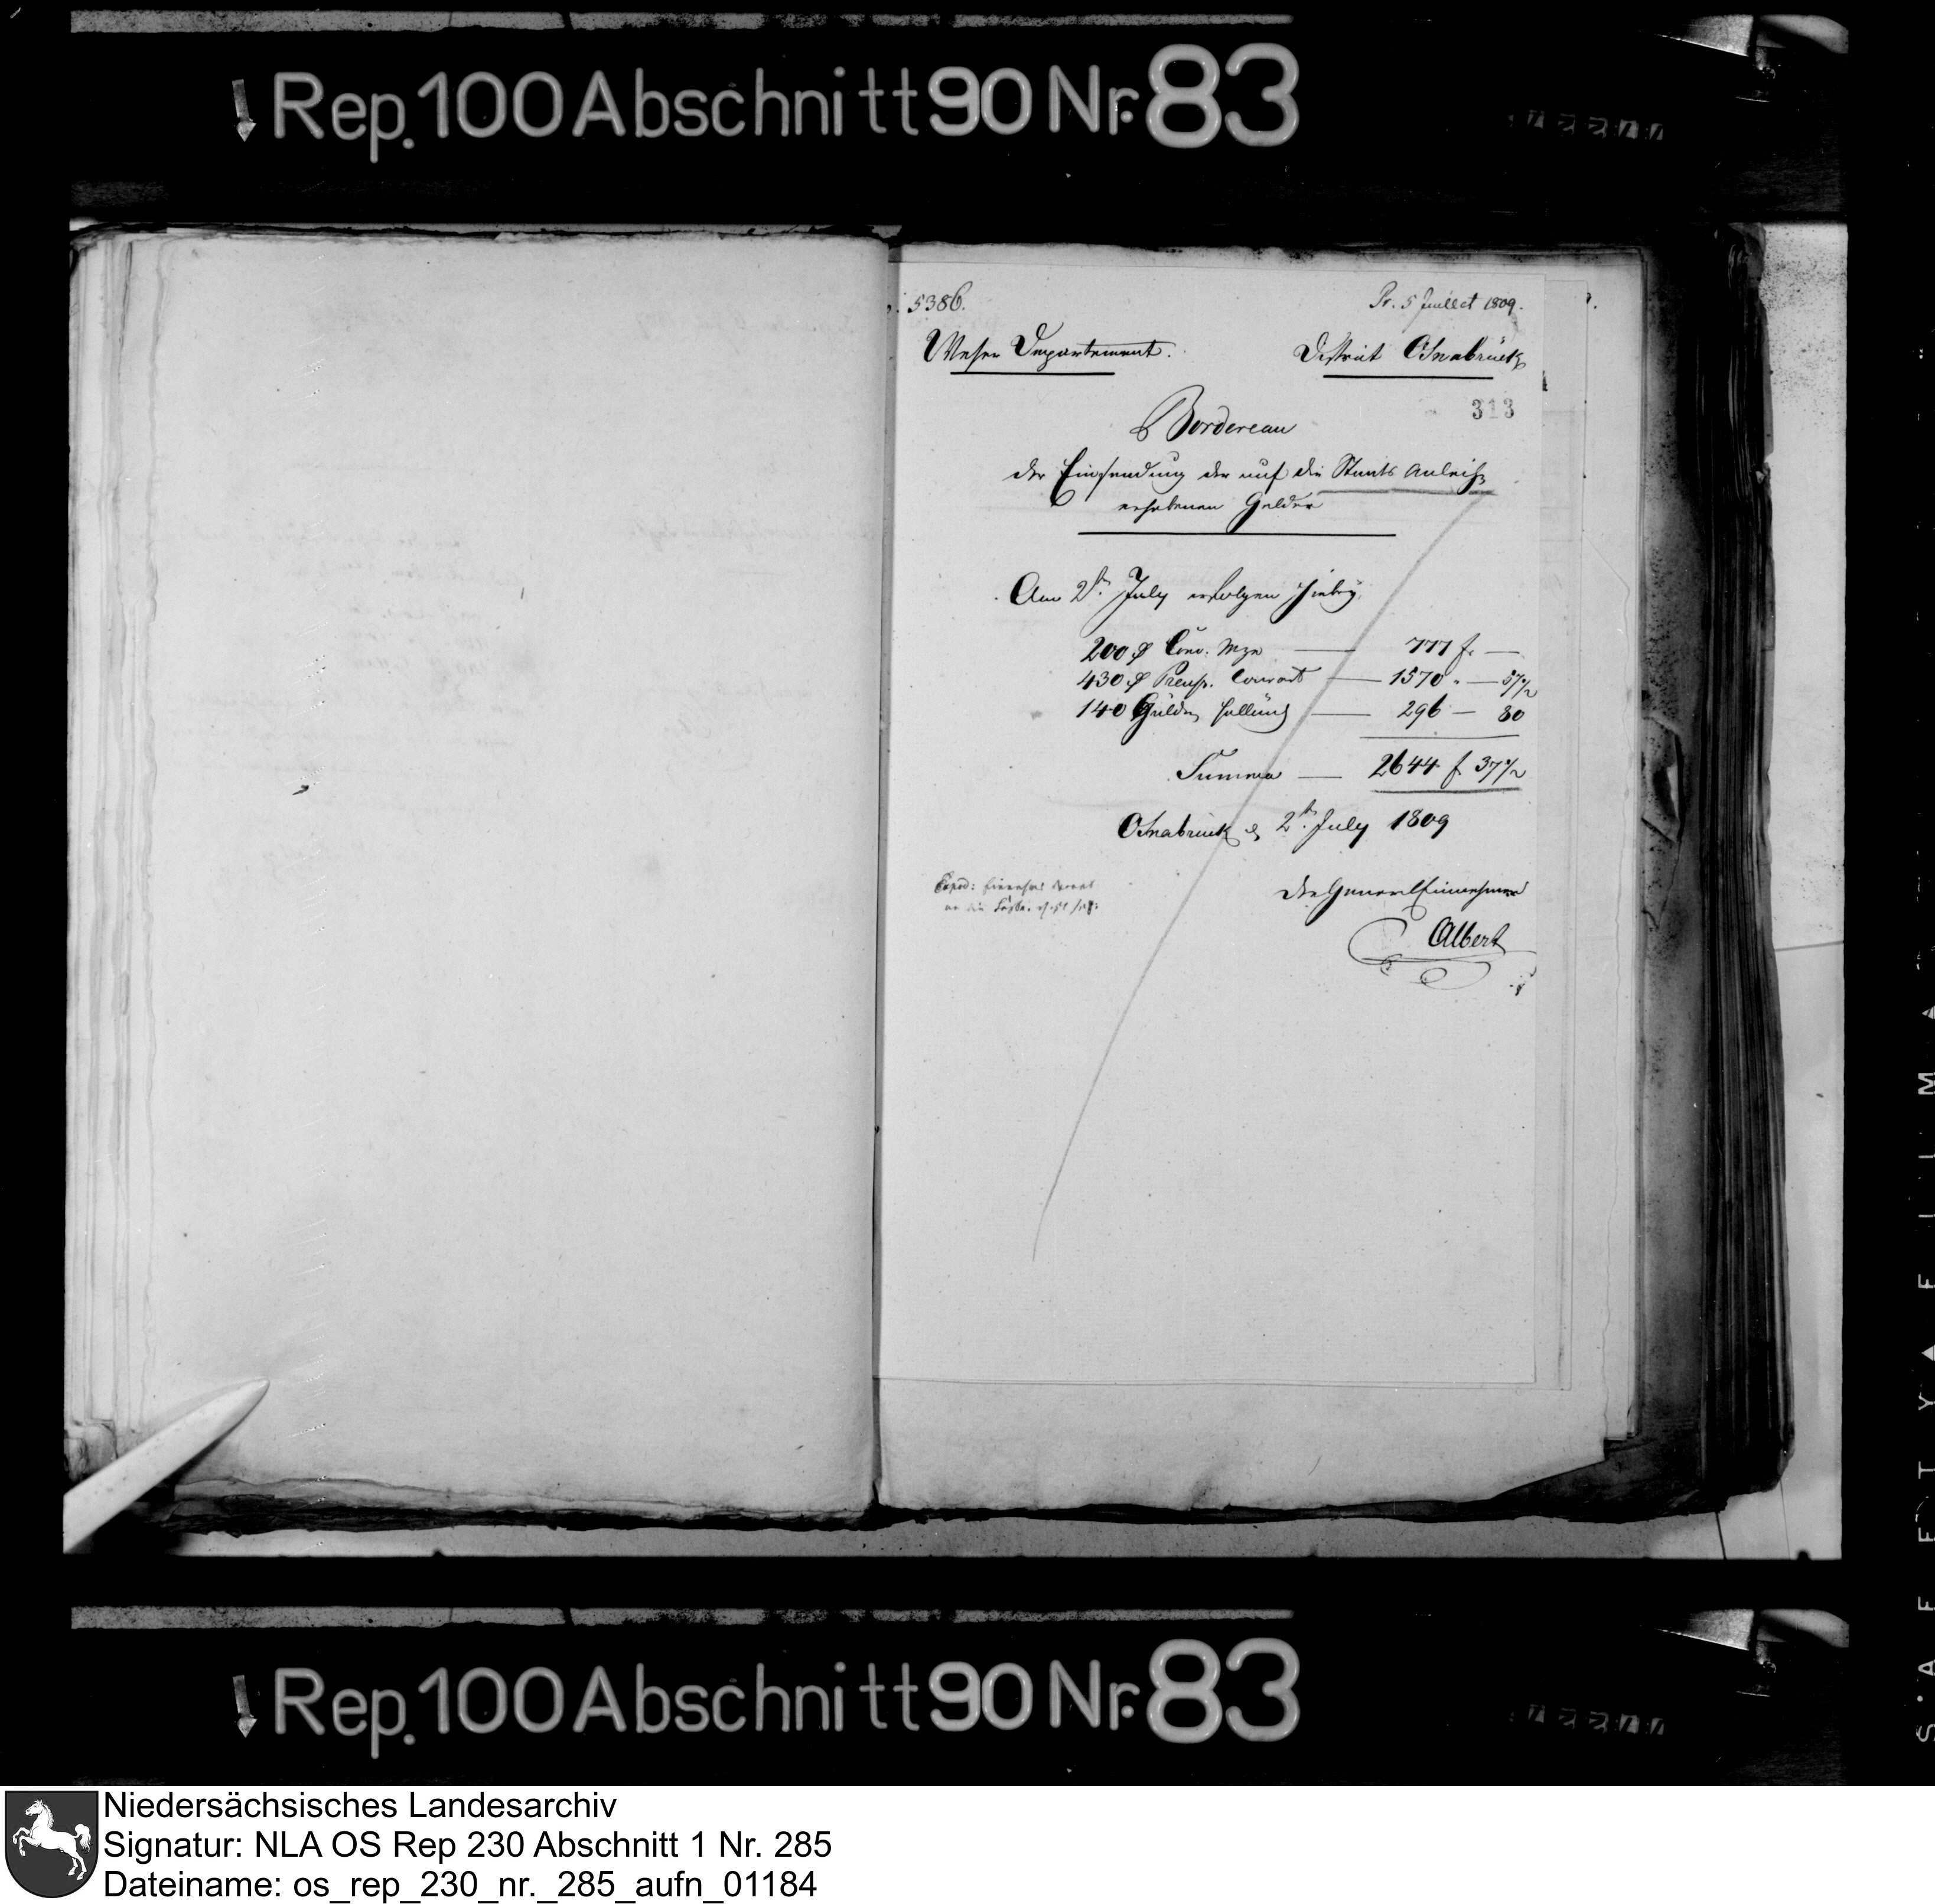 Rep. 100 Abschnitt 90 Nr. 83
5386.
Pr. 5 Juillet 1809.
Weser Departement.
District Osnabrück
313
Bordereau
der Einsendung der auf die Staats Anleihe
erhobenen Gelder
Am 2t. July erfolgen hiebey:
200 Conv. Mze — 777 f. —
430 Preuss. Courant — 1570 " — 57 1/2
140 Gulden holländ — 296 — 80
Summa — 2644 f 37 1/2
Osnabrück d. 2t. July 1809
Der General Einnehmer
Albert
Rep. 100 Abschnitt 90 Nr. 83
Niedersächsisches Landesarchiv
Signatur: NLA OS Rep 230 Abschnitt 1 Nr. 285
Dateiname: os_rep_230_nr._285_aufn_01184